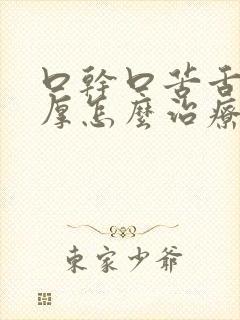 口幹口苦舌
厚怎麼治療
東家少爺